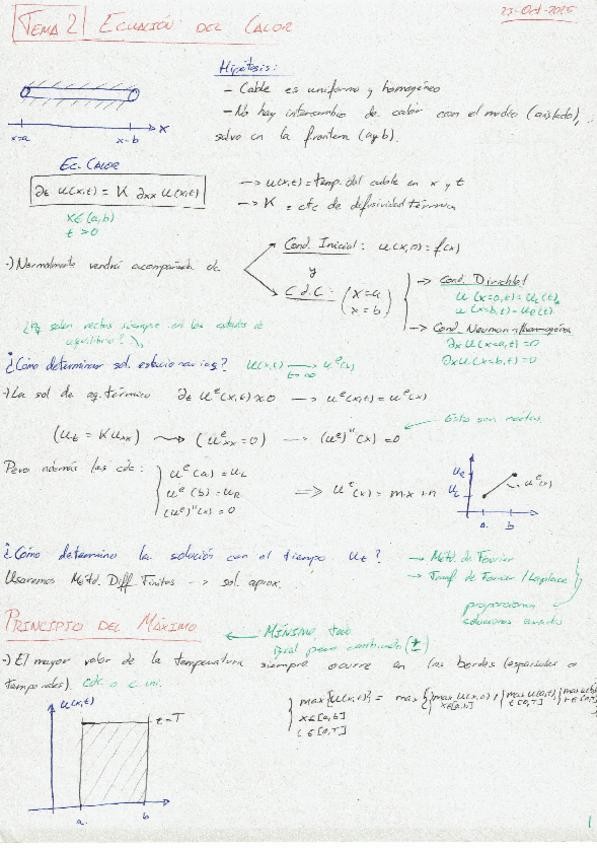 TEMA 2 ECUACIÓN DEL CALOR
23-Oct-2025
Hipótesis:
- Cable es uniforme y homogéneo
- No hay intercambio de calor con el medio (aislado),
salvo en la frontera (a y b).
x=a x=b x
Ec. CALOR
∂t u(x,t) = K ∂xx u(x,t)
x∈(a,b)
t>0
→ u(x,t) = temp. del cable en x y t
→ K = cte de difusividad térmica
·) Normalmente vendrá acompañada de
Cond. Inicial: u(x,0) = f(x)
y
C.d.C: (x=a
x=b)
→ Cond. Dirichlet
u(x=a,t) = uL(t)
u(x=b,t) = uR(t)
→ Cond. Neumann homogénea
∂x u(x=a,t) = 0
∂x u(x=b,t) = 0
salen rectas siempre en los estados de
equilibrio?
¿Cómo determinar sol. estacionarias? u(x,t) → t→∞ uᵉ(x)
·) La sol de eq. térmico ∂t uᵉ(x,t) ≈ 0 → uᵉ(x,t) = uᵉ(x)
(ut = K uxx) ⇝ (uᵉxx = 0) → (uᵉ)''(x) = 0
Esto son rectas
Pero además las cdc:
uᵉ(a) = uL
uᵉ(b) = uR
(uᵉ)''(x) = 0
⇒ uᵉ(x) = mx + n
uR
uL
uᵉ(x)
a b
¿Cómo determino la solución con el tiempo ut?
→ Métd. de Fourier
→ Transf de Fourier / Laplace
Usaremos Métd. Diff. Finitas → sol. aprox.
proporciona
soluciones exactas
PRINCIPIO DEL MÁXIMO
← MÍNIMO, todo
igual pero cambiando (±)
·) El mayor valor de la temperatura siempre ocurre en los bordes (espaciales o
temporales). cdc o c. ini.
max{u(x,t)} = max{ max u(x,0), max u(a,t), max u(b,t)
x∈[a,b] x∈[a,b] t∈[0,T] t∈[0,T]
t∈[0,T]
u(x,t)
t=T
a b
1